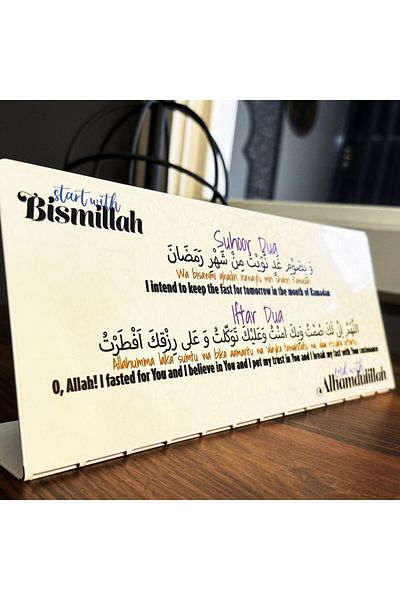 start with
Bismillah
Suhoor Dua
وَ بِصَوْمِ غَدٍ نَوَيْتُ مِنْ شَهْرِ رَمَضَانَ
Wa bisawmi ghadin nawaytu min Shahri Ramadan
I intend to keep the Fast for tomorrow in the month of Ramadan
Iftar Dua
اللَّهُمَّ اِنِّى لَكَ صُمْتُ وَبِكَ امَنْتُ وَعَلَيْكَ تَوَكَّلْتُ وَ عَلَى رِزْقِكَ اَفْطَرْتُ
Allahumma laka sumtu na bika aamantu na 'alayka
O, Allah! I fasted for You and I believe in You and I put my trust in You and I break my fast with Your sustenance
end with
Alhamdulillah